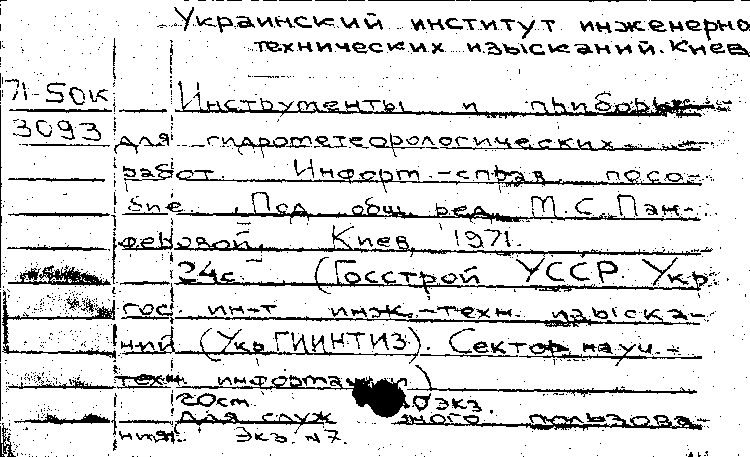 Украинский институт инженерно
технических изысканий. Киев
71-50к
Инструменты и приборы
3093
для гидрометеорологических
работ. Информ.-справ. посо-
бие. Под общ. ред. М.С. Пан-
феровой. Киев, 1971.
24с. (Госстрой УССР. Укр.
гос. ин-т инж.-техн. изыска-
ний (УкрГИИНТИЗ). Сектор науч.-
техн. информации)
20см. экз.
Для служ ного пользова-
ния. Экз. N7.